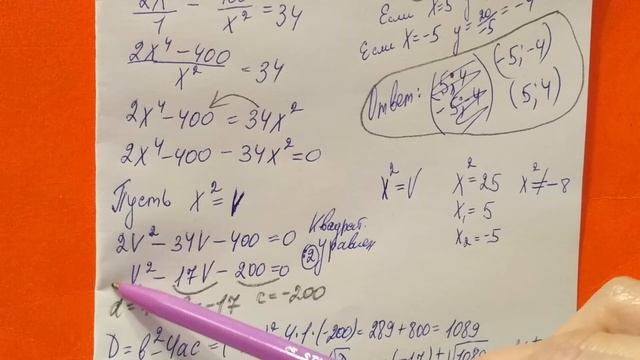 2x/1 - x² = 34
2x⁴-400/x² = 34
2x⁴-400 = 34x²
2x⁴-400-34x²=0
Пусть x²=V
2V²-34V-400=0
V²-17V-200=0
Квадрат.
уравнен
:2
-17 c=-200
D=b²-4ac=
4·1·(-200)=289+800=1089
Если x=5 y
Если x=-5 y=20/-5=-4
Ответ: (-5;-4)
(5;4)
x²=V x²=25 x²≠-8
x₁=5
x₂=-5